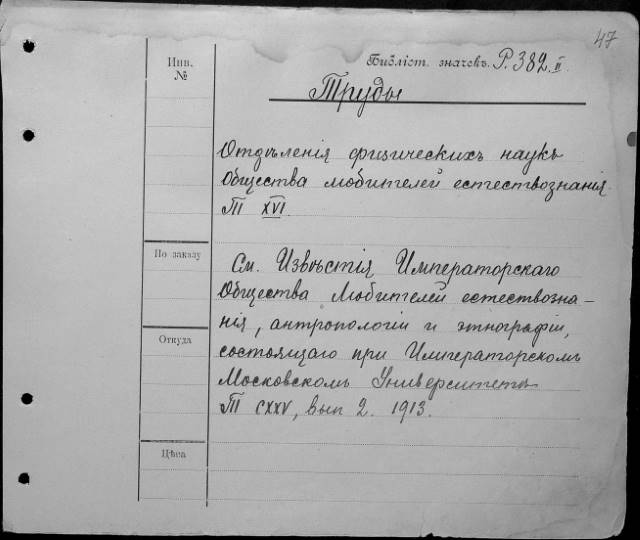 47
Библіот. значекъ P.382.II
Инв.
№
Труды
Отдѣленія физическихъ наукъ
Общества любителей естествознанія.
Т XVI.
По заказу
См. Извѣстія Императорскаго
Общества Любителей естествозна–
нія, антропологіи и этнографіи,
Откуда
состоящаго при Императорскомъ
Московскомъ Университетѣ
Т CXXV, вып 2. 1913.
Цѣна